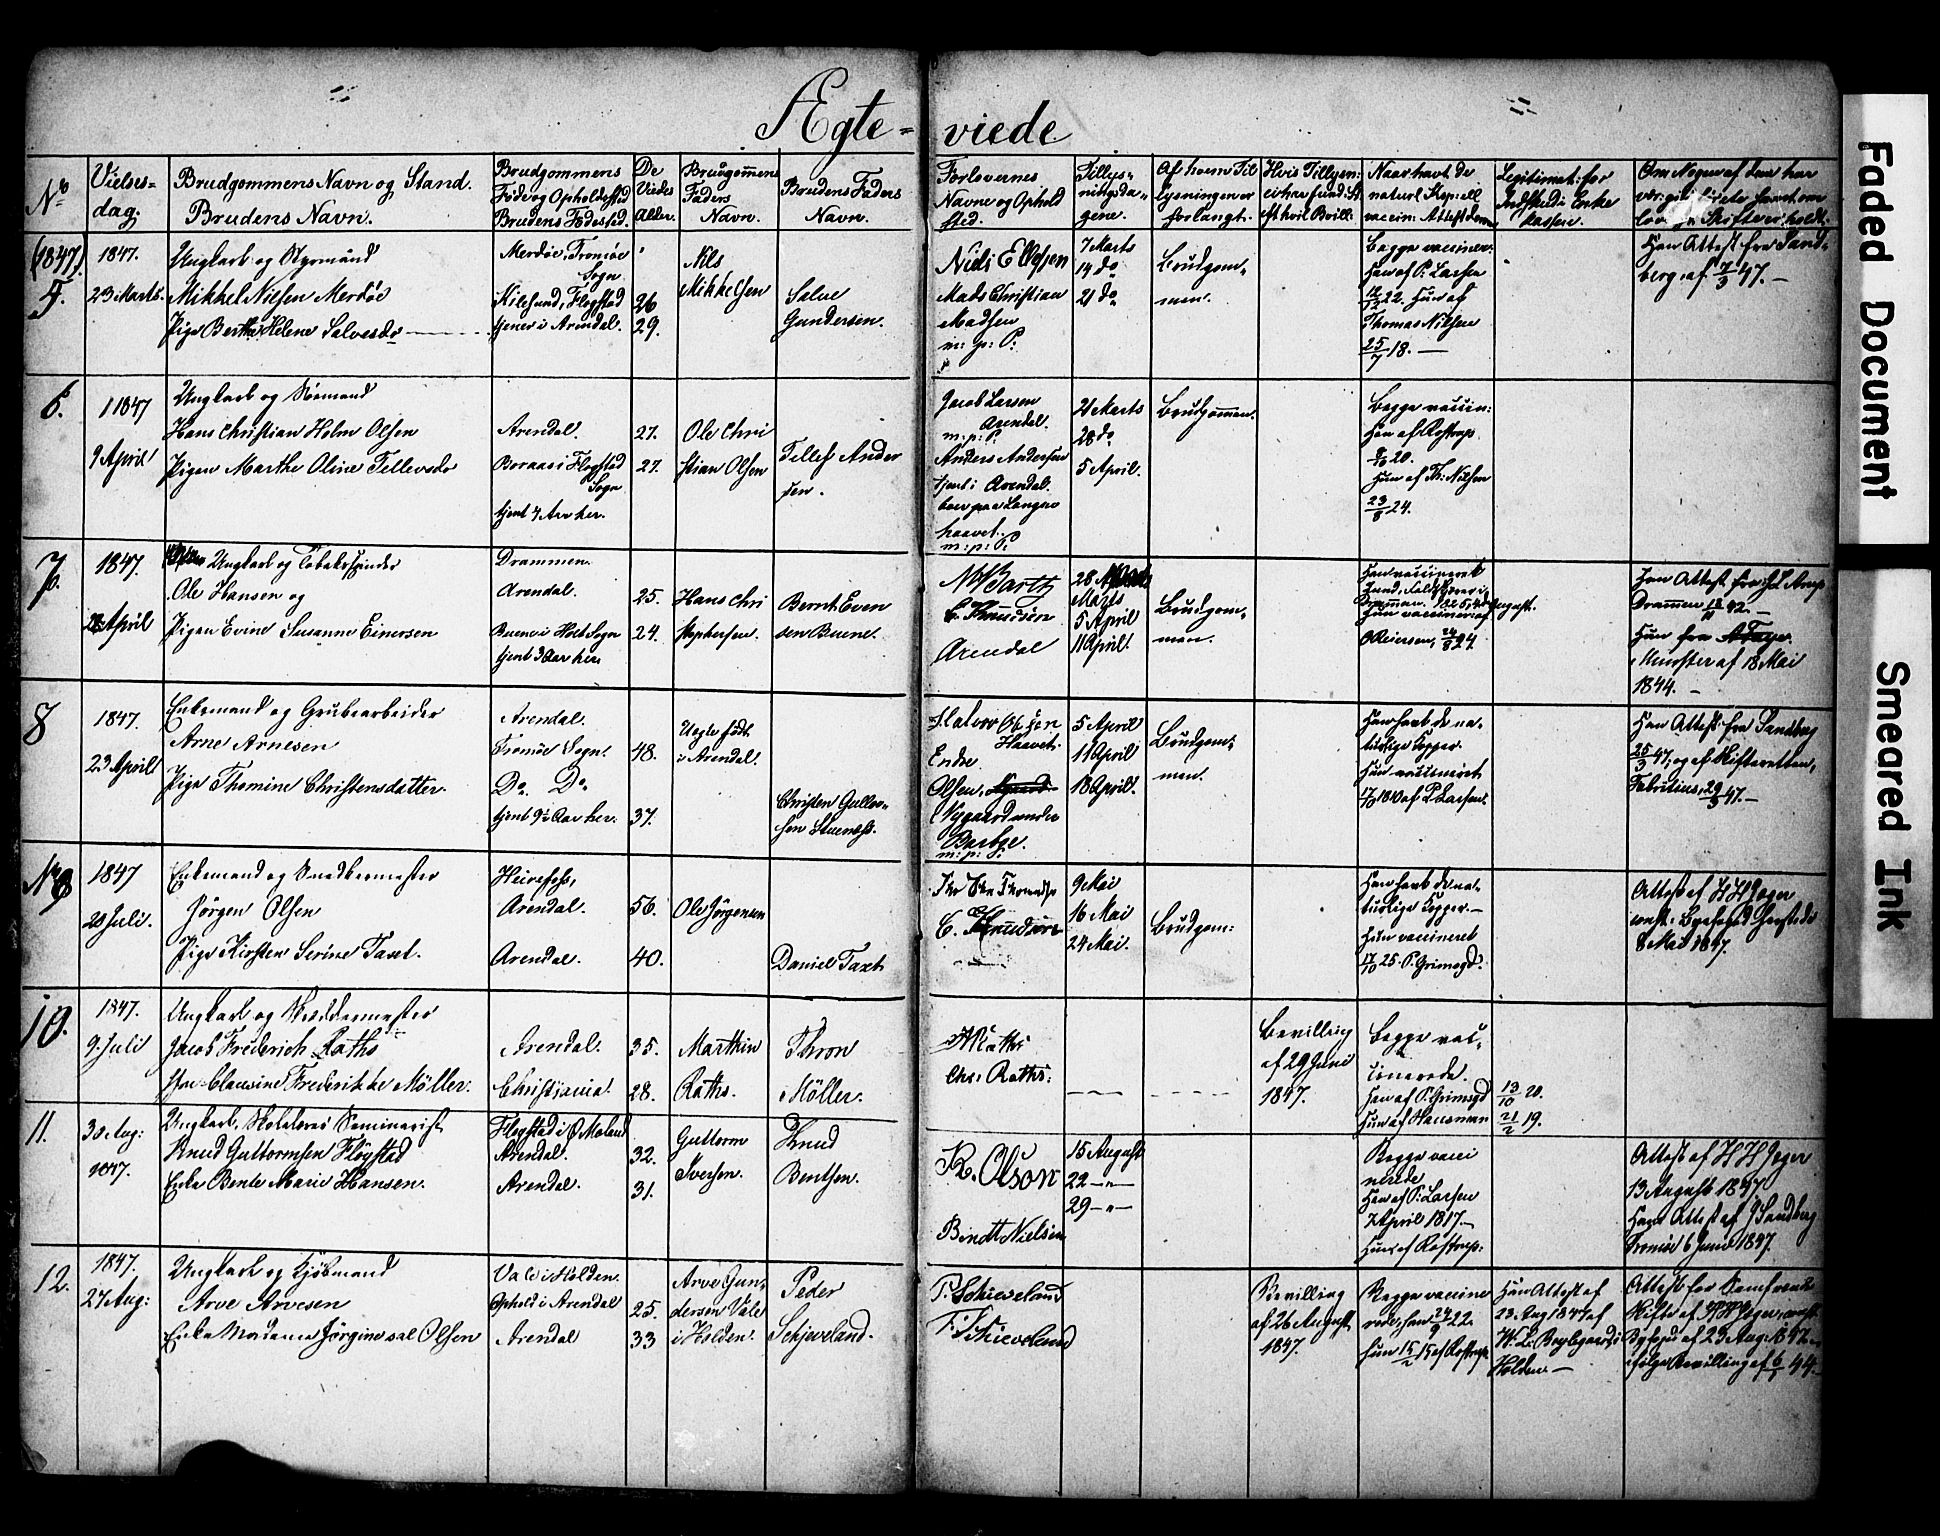 Ægte-viede
No
Vielses-
dag.
Brudgommens Navn og Stand.
Brudens Navn.
Brudgommens
Føde og Opholdssted
Brudens Fødested.
De
Viedes
Alder.
Brudgommens
Faders
Navn.
Brudens Faders
Navn.
Forlovernes
Navne og Ophold
sted.
Tillys-
ningsda-
gene.
Af hvem Til
lysningen er
forlangt.
Naar havt de
naturl. Kopp: ell
vaccin: Attest
Legitimat: for
Indskud i Enke
kassen.
Om Nogen af dem har
(1847)
5.
1847.
23 Marts.
Ungkarl og Styrmand
Mikkel Nielsen Merdøe
Pige Berthe Helene Salvesdr
Merdøe, Tromøe
Sogn
Kilesund, Flogstad
tjener i Arendal.
26
29.
Nils
Mikkelsen
Salve
Gundersen.
Niels Ellefsen
Mads Christian
Madsen
m: p: P:
7 Marts
14 do
21 do
Brudgom-
men.
Begge vacciner:
Han af P. Larsen
22. Hun af
Thomas Nilsen
25/7 18. —
Han Attest fra Sand-
berg, af 7/3 47. —
6.
1847
9 April
Ungkarl og Sømand
Hans Christian Holm Olsen
Pigen Marthe Oline Tellevsdr
Arendal.
Boraas i Flogstad
Sogn
tjent 4 Aar her.
27.
27.
Ole Chri
stian Olsen
Tellef Ander
sen.
Jacob Larsen
Arendal.
m: p: P.
Anders Andersen
Arendal.
boer paa Langsæ
haavet.
m: p: P:
21 Marts
28 do
5 April.
Brudgommen.
Begge vaccin:
Han af Rostrup
20.
Hun af Th: Nilsen
23/8 24.
7.
1847.
April
Ungkarl og Tobakspinder
Ole Hansen og
Pigen Evine Susanne Einersen
Drammen.
Arendal.
Buene i Holt Sogn
tjent 3 Aar her.
25.
24.
Hans Chri
stophersen.
Bernt Even
sen Buene.
Knudsen
Arendal
28
Marts
5 April
11 April.
Brudgom-
men.
Han vaccineret
Drammen
August.
Hun vaccineret af
O Reiersen, 24/8 24.
Han Attest fra
Drammen 42. —
Hun fra
af 18 Mai
1844. —
8
1847.
23 April
Enkemand og Grubearbeider
Arne Arnesen
Pige Thomine Christensdatter.
Arendal.
Tromøe Sogn.
Do. Do
tjent 9½ Aar her.
48.
37.
Uegte født
i Arendal.
Christen Gullov-
sen Stueness.
Halvor Olsen
Haavet.
Endre
Olsen,
Nygaard under
Barbge.
m: p: P:
5 April
11 April
18 April.
Brudgom-
men.
Han havt de na-
turlige Kopper.
Hun vaccineret
af P. Larsen.
Han Attest fra Sandberg
25/3 47, og af Skifteretten,
Fabritius, 29/3 47. —
No 9
1847
20 Juli.
Enkemand og Snedkermester
Jørgen Olsen
Pige Kirsten Serine Taxt.
Heirefoss,
Arendal.
Arendal.
56.
40.
Ole Jørgensen
Daniel Taxt
C. Knudsen
9 Mai
16 Mai
24 Mai.
Brudgom:
Han havt de na-
turlige Kopper. —
Hun vaccineret
17/10 25. P. Grimsgd.
Attest af H H Jøger
8 Mai 1847.
10.
1847.
9. Juli
Ungkarl og Skræddermester
Jacob Frederich Raths
Clausine Frederikke Möller.
Arendal.
Christiania.
35.
28.
Marthin
Raths.
Thron
Möller.
Chs: Raths:
Bevilling
af 29 Juni
1847.
Begge vac-
cinerede.
Han af P. Grimsgd
13/10 20.
Hun af Hausman
21/2 19.
11.
30 Aug:
1847.
Ungkarl, Skolelærer Seminarist
Knud Guttormsen Fløystad
Enke Bente Marie Hansen.
Flogstad i Ø Moland
Arendal.
Arendal.
32.
31.
Guttorm
Iversen.
Knud
Bentsen.
K. Olson
Bendt Nielsen
15 August
22 — " —
29 — " —
Begge vacci
nerede
Han af P. Larsen
7 April 1817. —
Hun af Rostrup.
Attest af H H Jøger
13 August 1847
Han Attest af J Sandberg
Tromøe 6 Juni 1847.
12.
1847.
27 Aug:
Ungkarl og Kjøbmand
Arve Arvesen
Enke Madame Jörgine sal Olsen
Vale i Holden.
Ophold i Arendal
Arendal
25.
33
Arve Gun-
dersen Vale
i Holden.
Peder
Schjeveland.
P. Schieveland
F. Schieveland
Bevilling
af 26 August
1847.
Begge vaccine
rede, han 24/9 22.
hun 15/2 15 af Rostrup
Han Attest af
23. Aug 1847 af
Holden. —
Attest for
Skifte af H H Jøger, const.
Byfogd af 23 Aug. 1847. —
ifølge Bevilling af 6/5 44. —
Faded Document
Smeared Ink